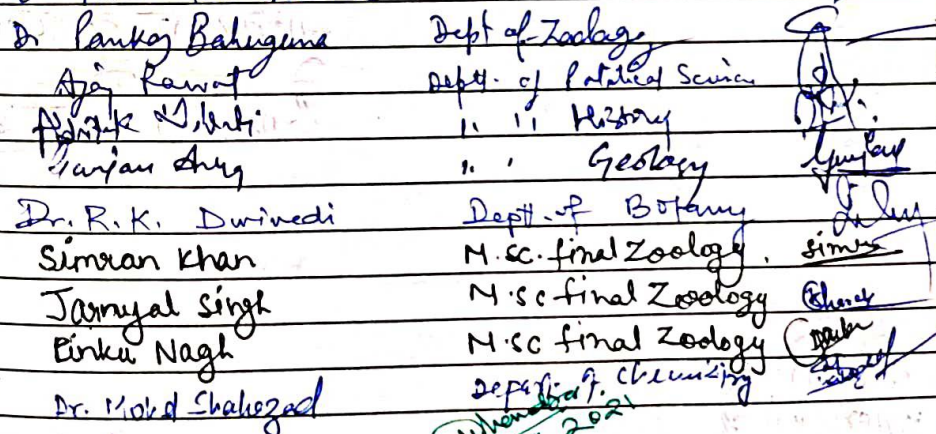 Dr Pankaj Bahuguna Dept of Zoology
Ajay Rawat Deptt. of Political Science
,, ,, History
Gunjan ,, , Geology
Dr. R.K. Dwivedi Deptt. of Botany
Simran Khan M.sc. final Zoology. Simran
Jarnyal Singh M.sc final Zoology
Pinku Nagh M.sc final Zoology
Dr. Mohd Shahezad Depart. of Chemistry
2021